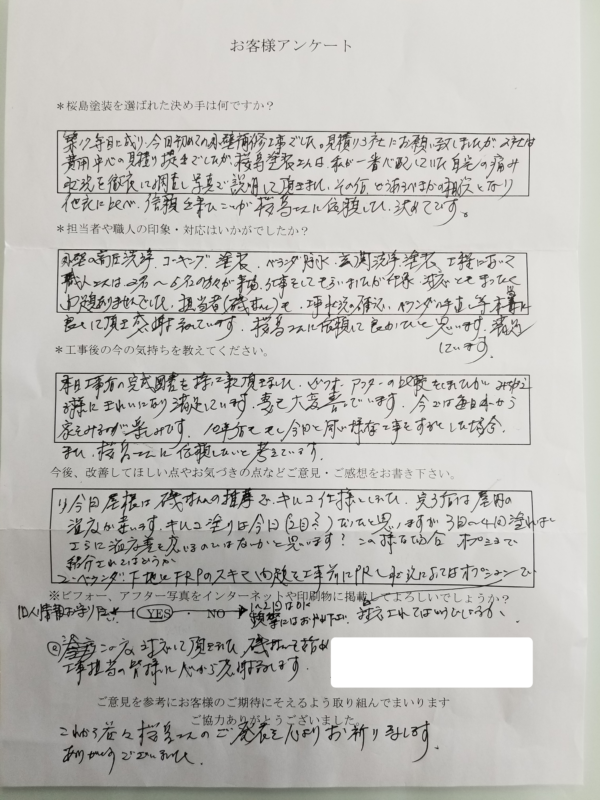 お客様アンケート
*桜島塗装を選ばれた決め手は何ですか?
築17年目に成り、今回初めての外壁補修工事でした。見積り3社にお願い致しましたが2社は
費用中心の見積り提案でしたが桜島塗装さんは私が一番心配していた自宅の痛み
状況を徹底して調査し写真で説明して頂きました。その他
他社に比べ、信頼を
桜島さんに依頼した決めてです。
*担当者や職人の印象・対応はいかがでしたか?
外壁の高圧洗浄、コーキング、塗装、ベランダ防水、玄関洗浄塗装、工程において
職人さんは2名~
仕事をしてもらいましたが仕事、対応ともまったく
問題ありませんでした。担当者(磯さん)も、工事状況の確認、ベランダの手直し等本当に
良くして頂き感謝しています。桜島さんに依頼して良かったと思います。満足
しています。
*工事後の今の気持ちを教えてください。
本日工事后の完成図書を
頂きました。ビフォー、アフターの比較をしましたが
きれいになり満足しています。妻も大変喜んでいます。今では毎日外から
家をみるのが楽しみです。
もし今回と同じ様な工事をするとした場合、
また、桜島さんに依頼したいと考えています。
今後、改善してほしい点やお気づきの点などご意見・ご感想をお書き下さい。
1)今回屋根は磯さんの推薦で、キルコ仕様としました。完了后は屋内の
温度が違います。キルコ塗りは今回(2回?)だったと思いますが3回~4回塗れば
さらに温度差を
のではなかと思います?この様な場合オプションで
紹介されてはどうか
2.ベランダ下地とFRPのスキマ問題を工事前にPRし状況によってはオプションで
対応されてはいかがでしょうか。
※ビフォー、アフター写真をインターネットや印刷物に掲載してよろしいでしょうか?
個人情報お守り
YES ・ NO
HPはOK
おやめ下さい
この度対応して頂きました、磯さんを始め
工事担当の皆様に心から感謝します。
ご意見を参考にお客様のご期待にそえるよう取り組んでまいります
ご協力ありがとうございました。
これから益々桜島さんのご発展を心よりお祈りします。
ありがとうございました。